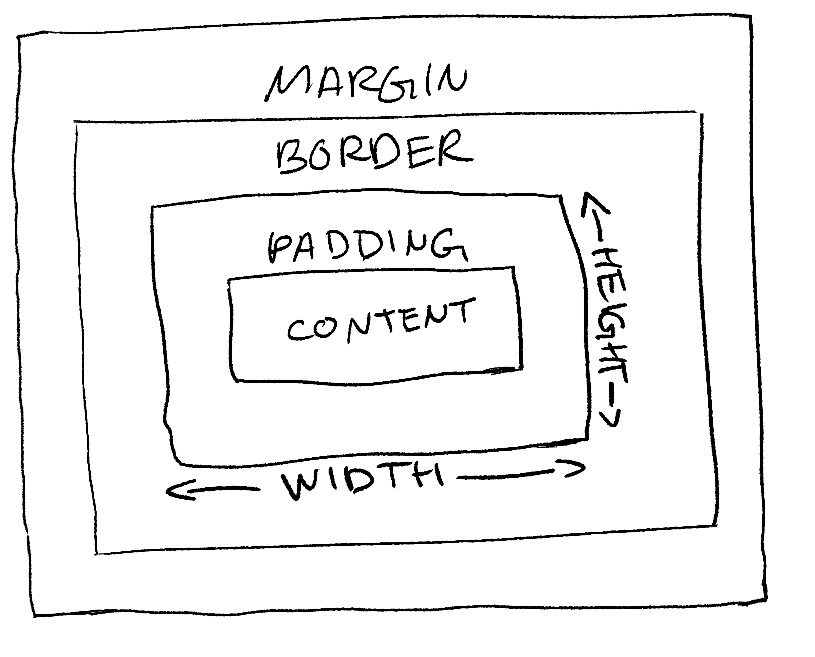 MARGIN
BORDER
PADDING
CONTENT
HEIGHT
WIDTH